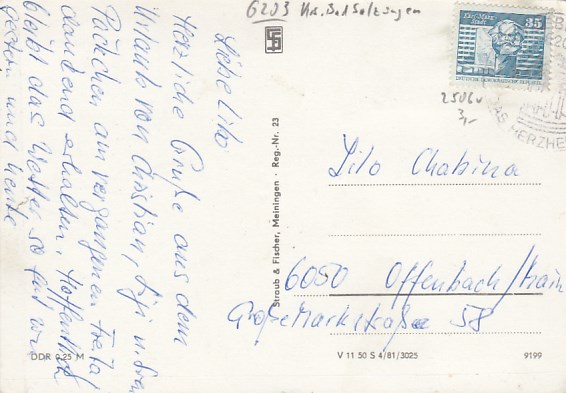 6203 Krs. Bad Salzungen
Liebe Lilo
Herzliche Grüße aus dem
Urlaub von Christian,
Päckchen am vergangenen Freitag
dankend erhalten. Hoffentlich
bleibt das Wetter so gut wie
gestern und heute
DDR 0,25 M
Straub & Fischer, Meiningen · Reg.-Nr. 23
Karl-Marx-
Stadt
35
DEUTSCHE DEMOKRATISCHE REPUBLIK
DAS HERZHE
2506v
3,-
Lilo Chabina
6050 Offenbach/Main
Große Marktstraße 58
V 11 50 S 4/81/3025
9199